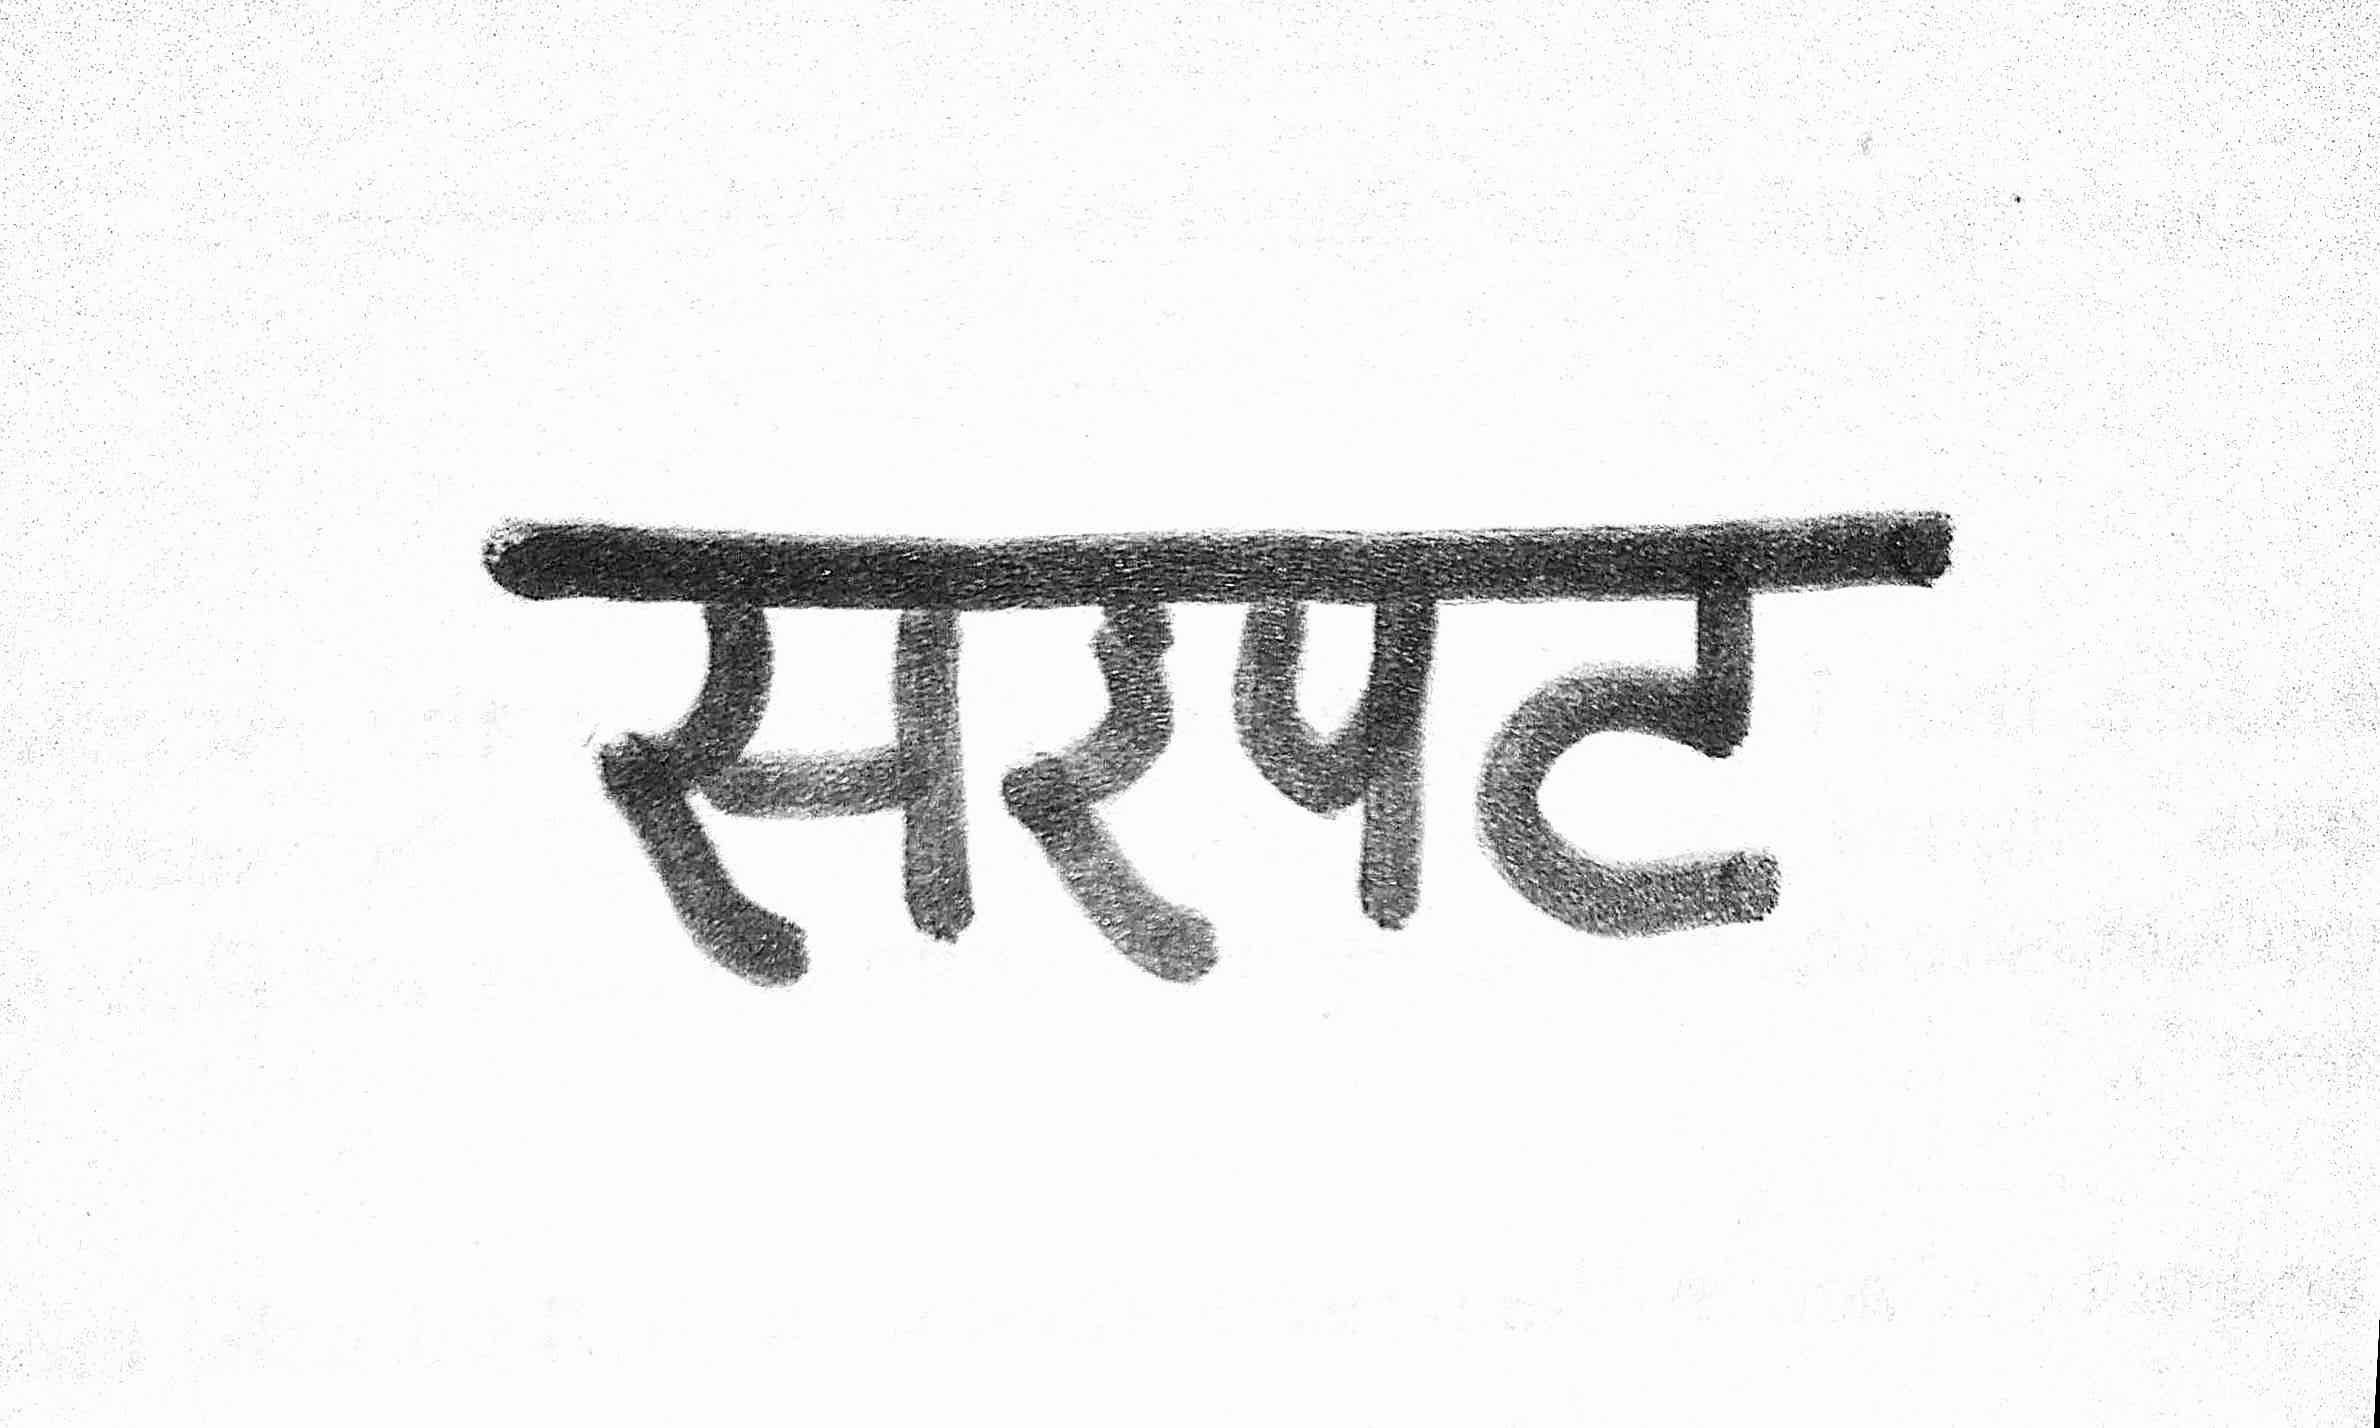 सरपट